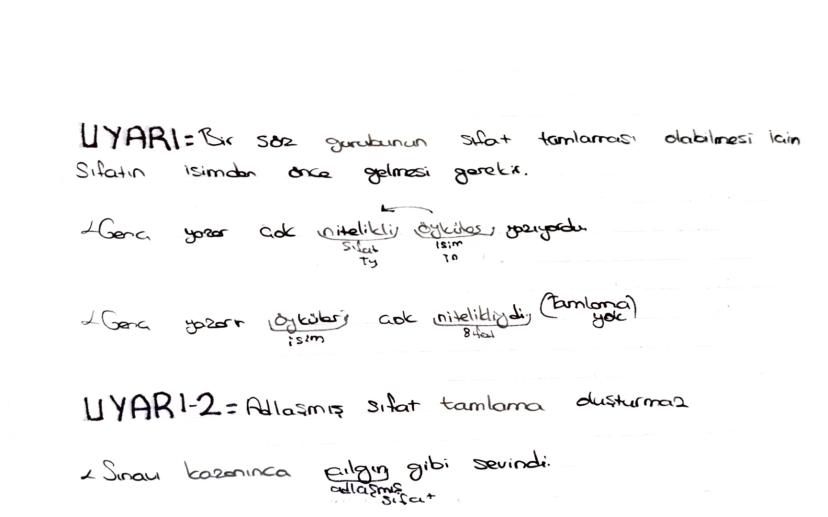 UYARI= Bir söz gurubunun sıfat tamlaması olabilmesi için
Sıfatın isimden önce gelmesi gerekir.
Genç yazar çok nitelikli öyküler yazıyordu.
sıfat isim
Ty Tn
Genç yazar öyküler çok nitelikliydi, (Tamlama yok)
isim sıfat
UYARI-2= Adlaşmış sıfat tamlama oluşturmaz
Sınavı kazanınca çılgın gibi sevindi.
adlaşmış
sıfat